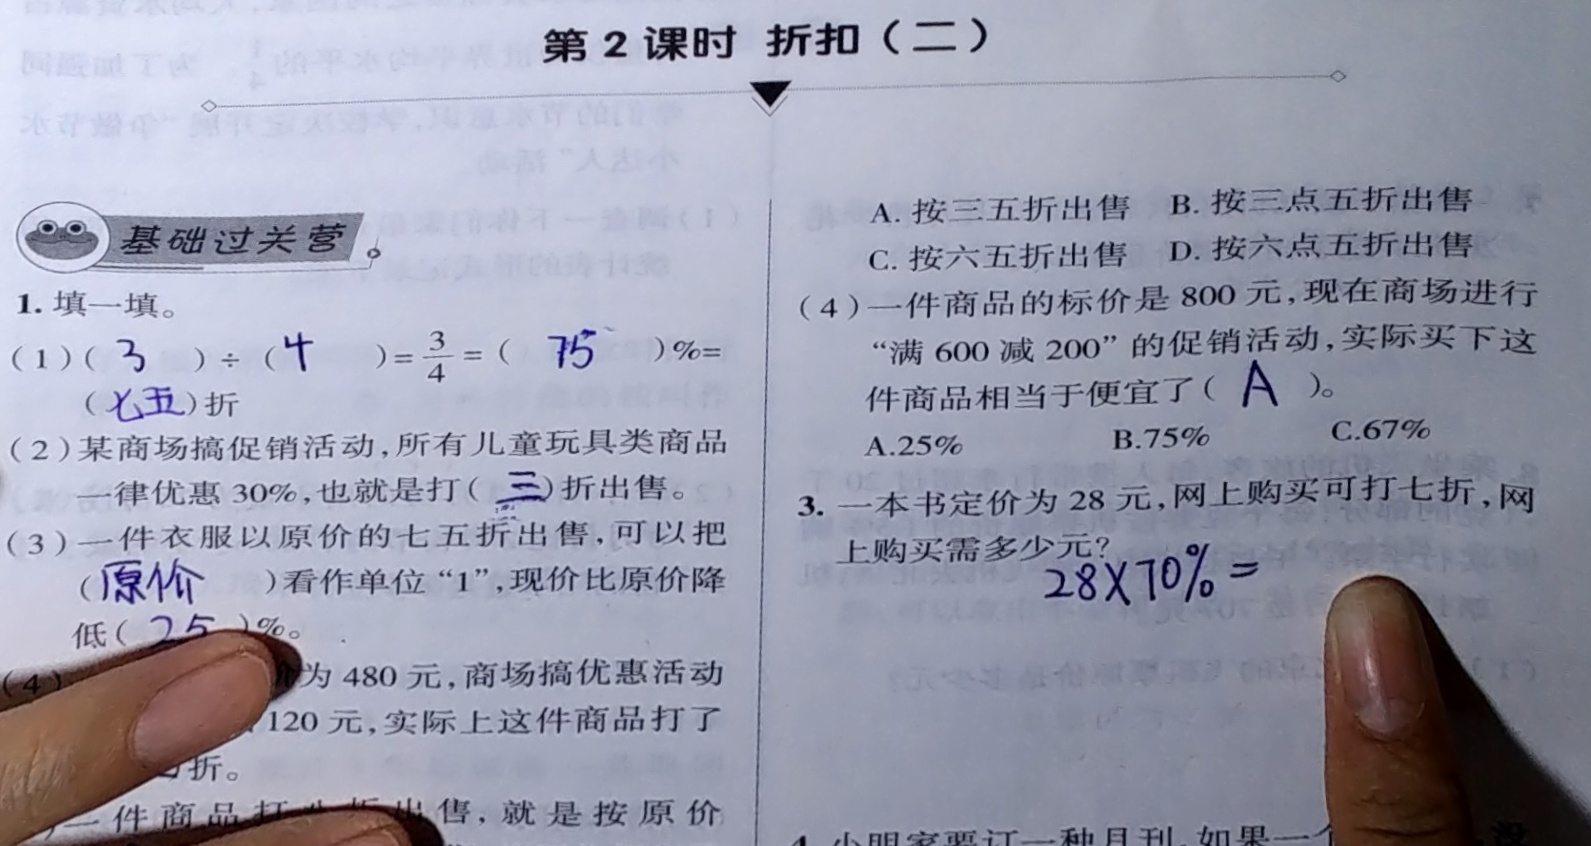 第2课时 折扣(二)
基础过关营
1. 填一填。
(1)( 3 )÷( 4 )=3/4=( 75 )%=
(七五)折
(2)某商场搞促销活动,所有儿童玩具类商品
一律优惠30%,也就是打(三)折出售。
(3)一件衣服以原价的七五折出售,可以把
(原价)看作单位“1”,现价比原价降
低( 25 )%。
(4)
为480元,商场搞优惠活动
120元,实际上这件商品打了
折。
一件商品打 折出售,就是按原价
A. 按三五折出售 B. 按三点五折出售
C. 按六五折出售 D. 按六点五折出售
(4)一件商品的标价是800元,现在商场进行
“满600减200”的促销活动,实际买下这
件商品相当于便宜了( A )。
A.25% B.75% C.67%
3. 一本书定价为28元,网上购买可打七折,网
上购买需多少元?
28×70%=
小明家要订一种月刊,如果一个